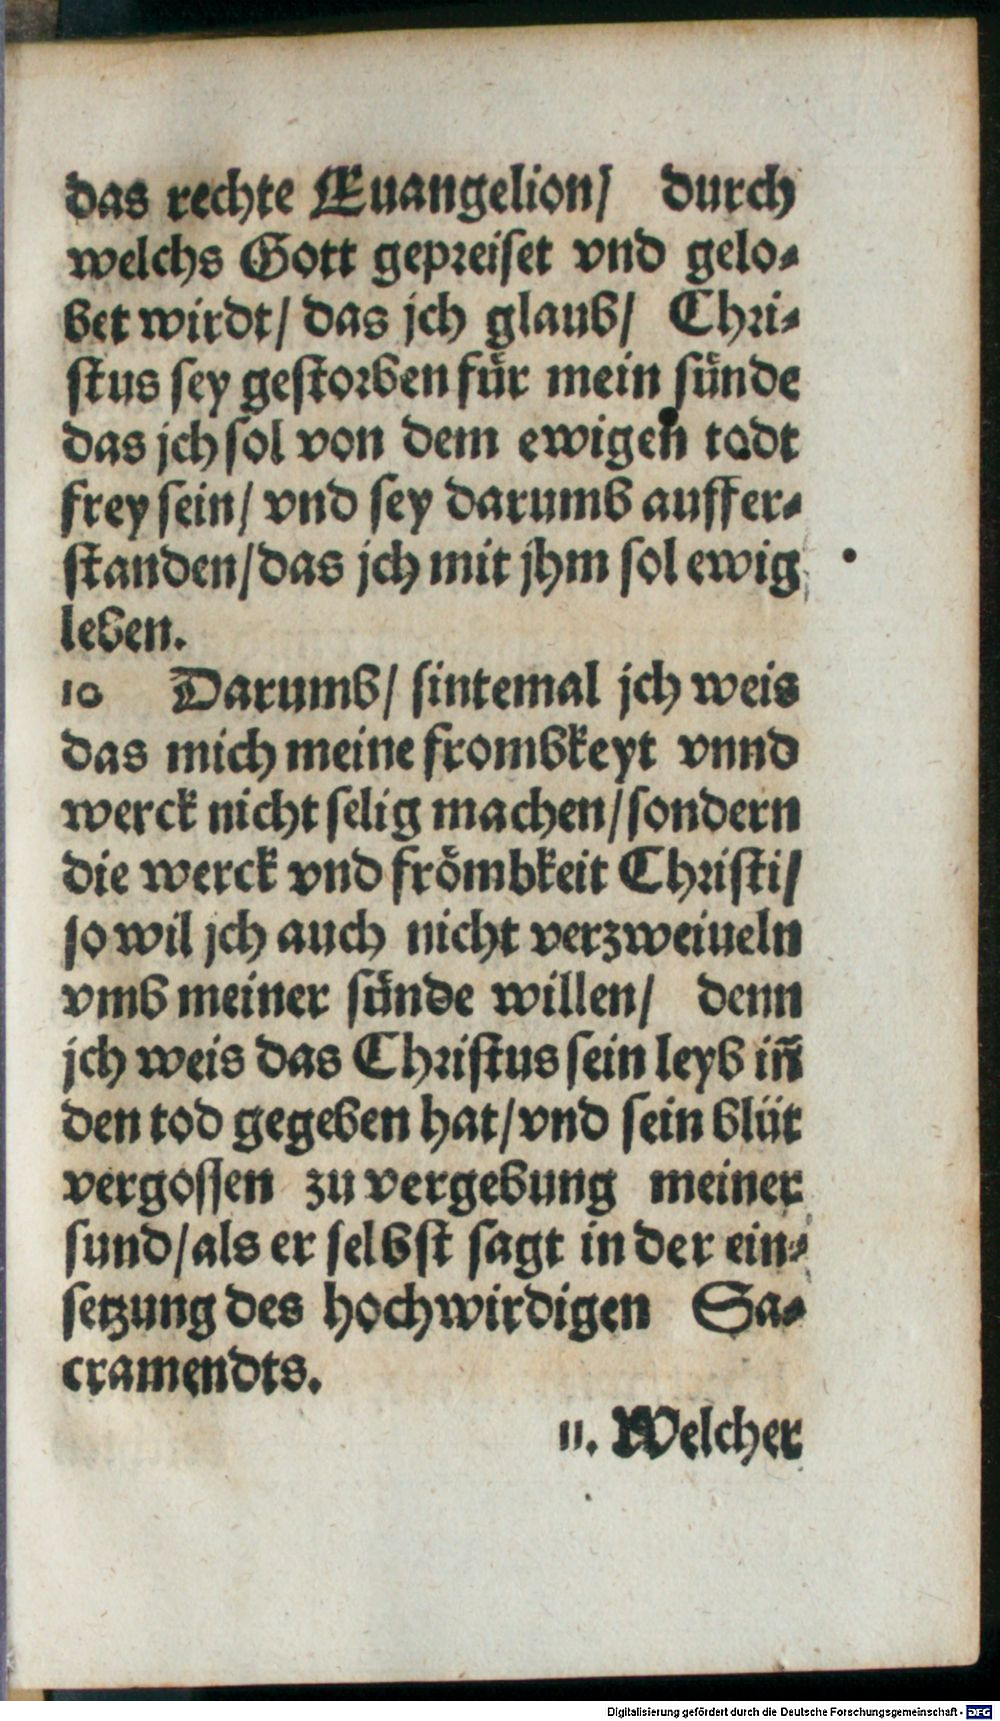 das rechte Euangelion/ durch
welchs Gott gepreiset vnd gelo-
bet wirdt/ das jch glaub/ Chri-
stus sey gestorben für mein sünde
das jch sol von dem ewigen todt
frey sein/ vnd sey darumb auffer-
standen/das jch mit jhm sol ewig
leben.
10 Darumb/ sintemal jch weis
das mich meine frombkeyt vnnd
werck nicht selig machen/sondern
die werck vnd frömbkeit Christi/
so wil jch auch nicht verzweiueln
vmb meiner sünde willen/ denn
jch weis das Christus sein leyb in̄
den tod gegeben hat/vnd sein blüt
vergossen zu vergebung meiner
sund/als er selbst sagt in der ein-
setzung des hochwirdigen Sa-
cramendts.
11. Welcher
Digitalisierung gefördert durch die Deutsche Forschungsgemeinschaft - DFG